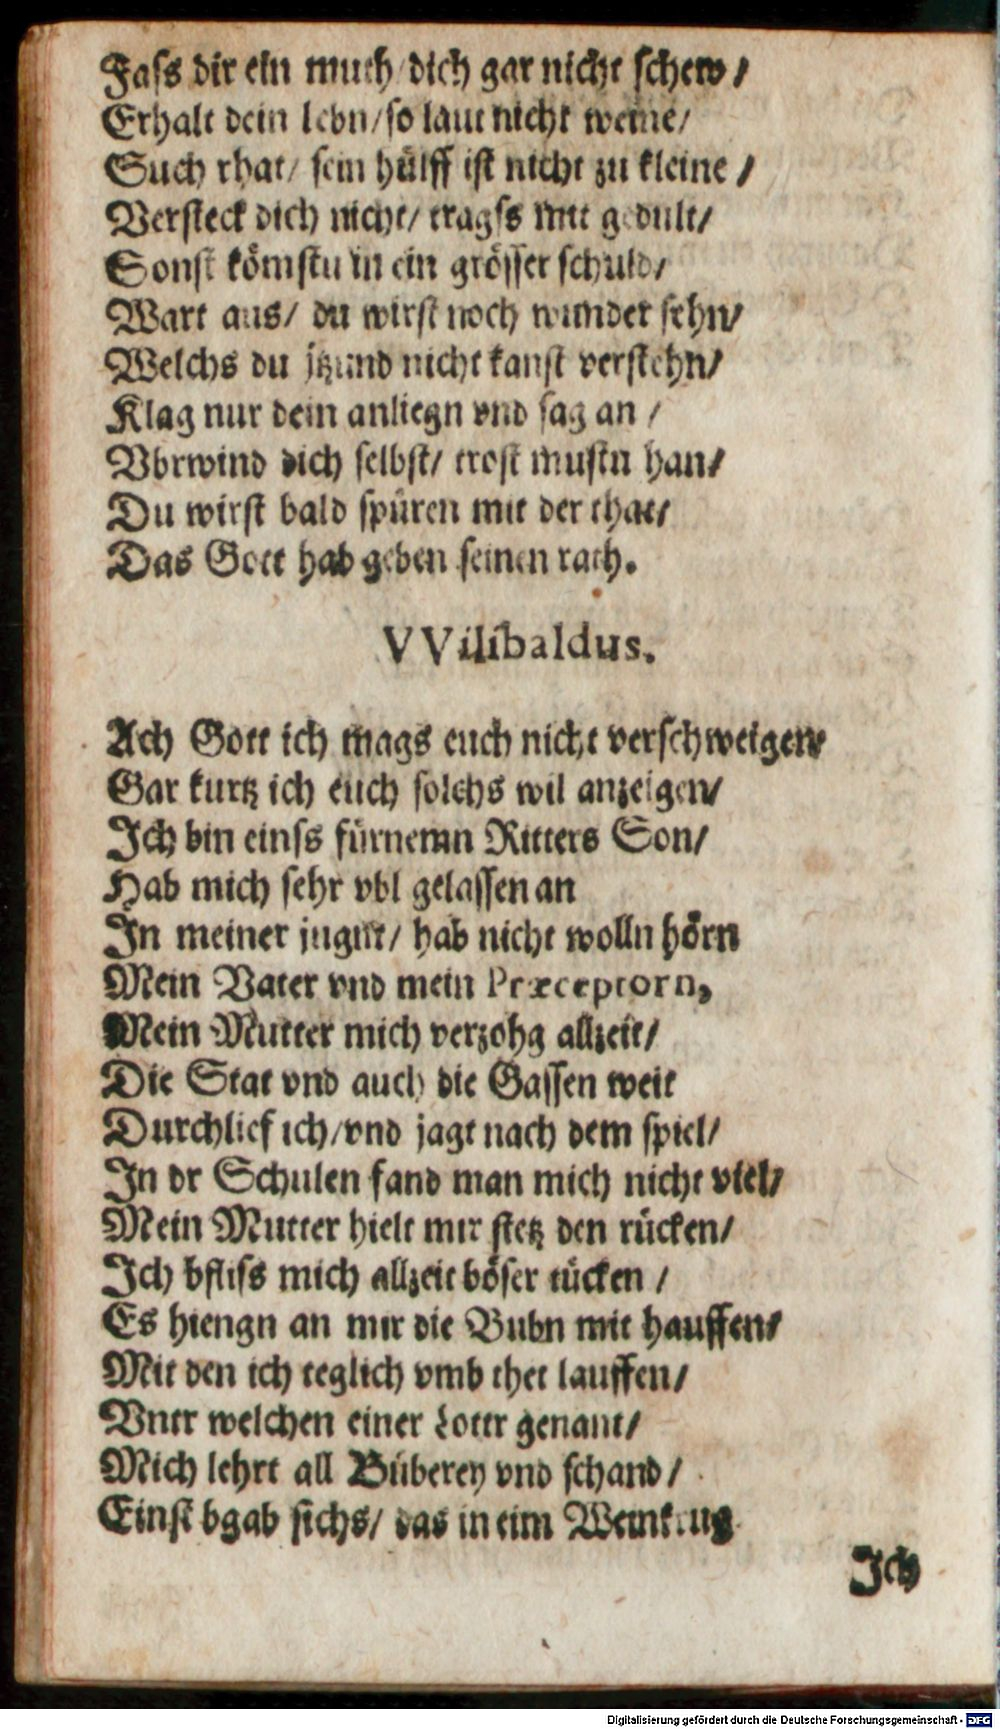 Fass dir ein muth / dich gar nicht schew /
Erhalt dein lebn / so laut nicht weine /
Such rhat / sein hülff ist nicht zu kleine /
Versteck dich nicht / tragss mit gedult /
Sonst kömstu in ein grösser schuld /
Wart aus / du wirst noch wunder sehn /
Welchs du jtzund nicht kanst verstehn /
Klag nur dein anliegn vnd sag an /
Vbrwind dich selbst / trost mustu han /
Du wirst bald spüren mit der that /
Das Gott hab geben seinen rath.
VVilibaldus.
Ach Gott ich mags euch nicht verschweigen /
Gar kurtz ich euch solchs wil anzeigen /
Ich bin einss fürnemn Ritters Son /
Hab mich sehr vbl gelassen an
In meiner jugnt / hab nicht wolln hörn
Mein Vater vnd mein Præceptorn,
Mein Mutter mich verzohg allzeit /
Die Stat vnd auch die Gassen weit
Durchlief ich / vnd jagt nach dem spiel /
In dr Schulen fand man mich nicht viel /
Mein Mutter hielt mir stetz den rücken /
Ich bfliss mich allzeit böser tücken /
Es hiengn an mir die Bubn mit hauffen /
Mit den ich teglich vmb thet lauffen /
Vntr welchen einer Lottr genant /
Mich lehrt all Büberey vnd schand /
Einst bgab sichs / das in eim Weinkrug
Ich
Digitalisierung gefördert durch die Deutsche Forschungsgemeinschaft - DFG